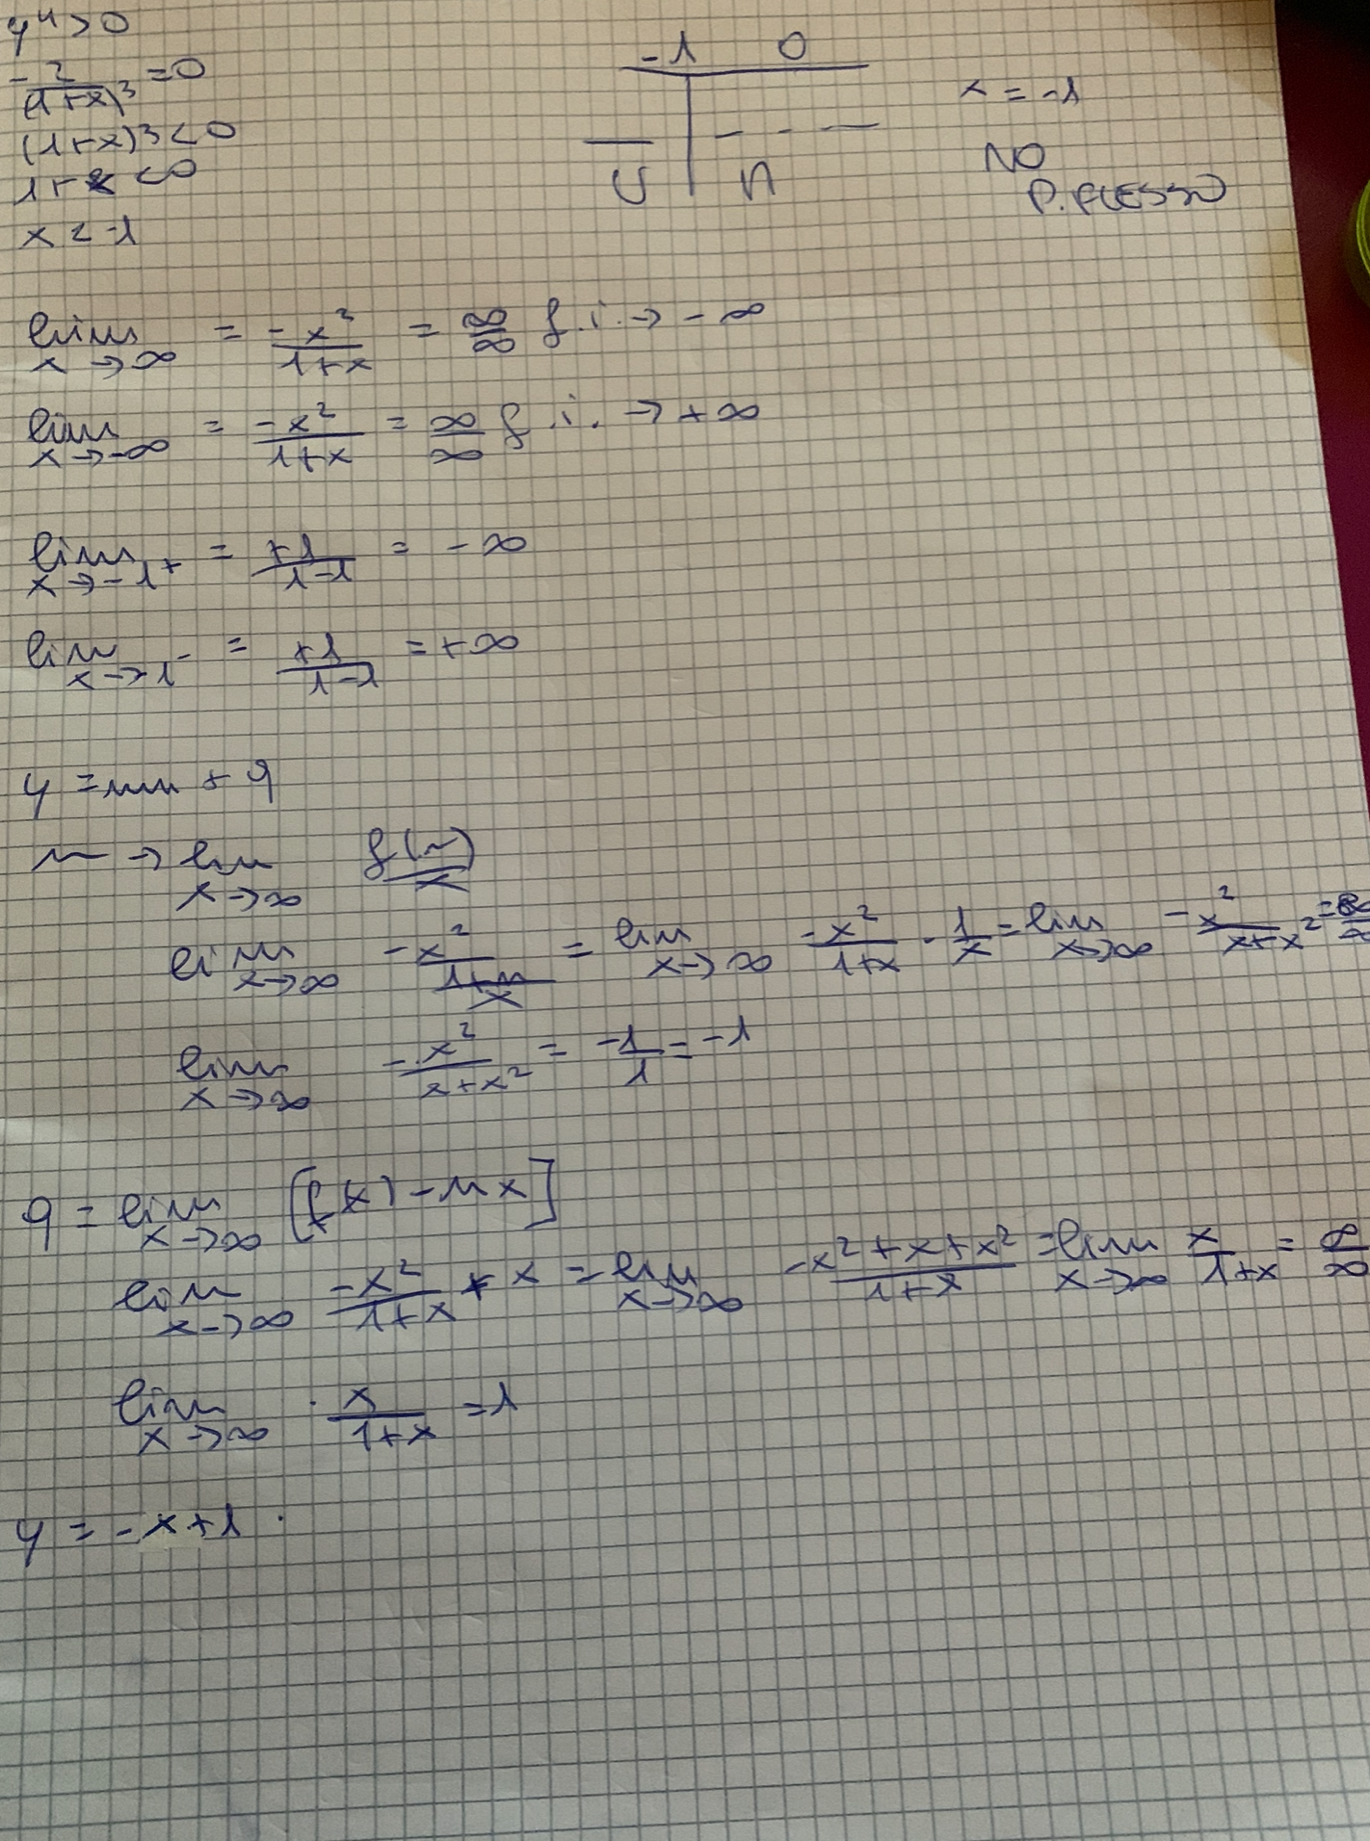 y" > 0
-2/(1+x)³ = 0
(1+x)³ < 0
1+x < 0
x < -1
-1 0
∪ ∩
x = -1
NO
P. FLESSO
lim x→∞ = -x²/1+x = ∞/∞ f.i. → -∞
lim x→-∞ = -x²/1+x = ∞/∞ f.i. → +∞
lim x→-1⁺ = +1/1-1 = -∞
lim x→1⁻ = +1/1-1 = +∞
y = mx + q
m → lim x→∞ f(x)/x
lim x→∞ -x²/1+x/x = lim x→∞ -x²/1+x · 1/x = lim x→∞ -x²/x+x² = ∞/∞
lim x→∞ -x²/x+x² = -1/1 = -1
q = lim x→∞ [f(x) - mx]
lim x→∞ -x²/1+x + x = lim x→∞ -x²+x+x²/1+x = lim x→∞ x/1+x = ∞/∞
lim x→∞ x/1+x = 1
y = -x+1